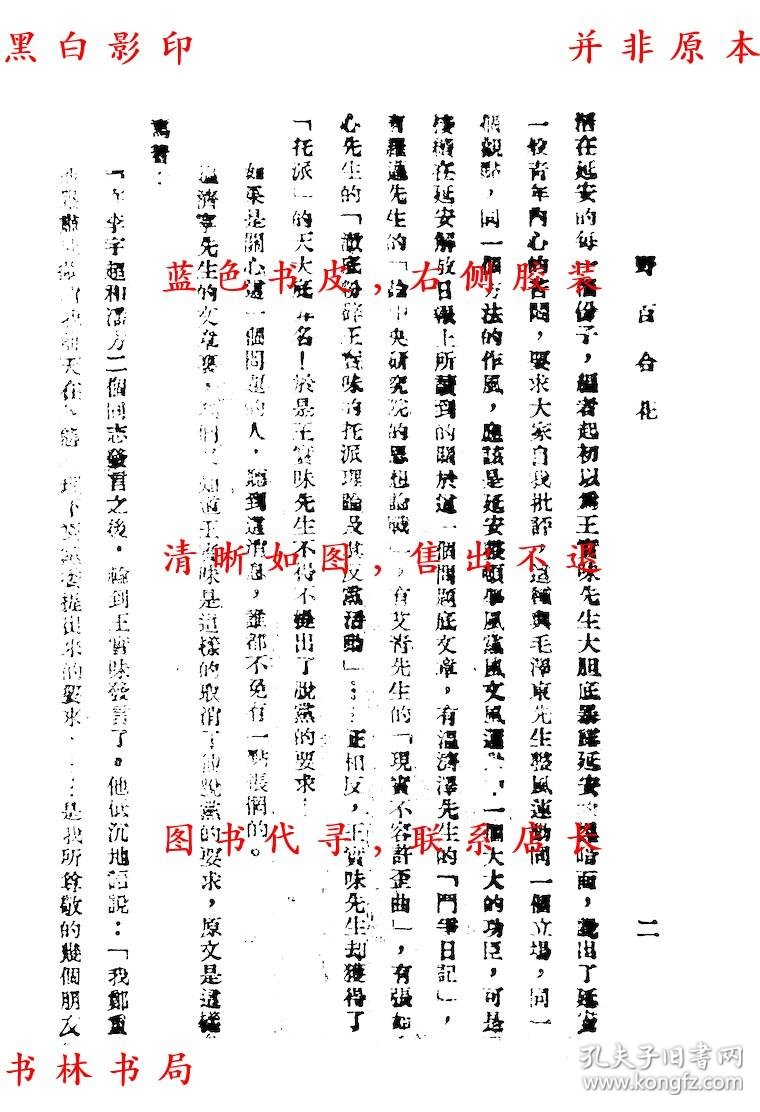 黑白影印 并非原本
野百合花 二
活在延安的每一個份子，編者起初以爲王實味先生大胆底暴露延安的黑暗面，説出了延安
一般青年內心的苦悶，要求大家自我批評，這種與毛澤東先生整風運動同一個立場，同一
個觀點，同一個方法的作風，應該是延安整頓學風黨風文風運動，一個大大的功臣，可是
接續在延安解放日報上所讀到的關於這一個問題底文章，有溫濟澤先生的「鬥爭日記」，
有羅邁先生的「論中央研究院的思想論戰」，有艾青先生的「現實不容許歪曲」，有張如
心先生的「澈底粉碎王實味的托派理論及其反黨活動」……正相反，王實味先生却獲得了
「托派」的天大底罪名！於是王實味先生不得不提出了脫黨的要求
如果是關心這一個問題的人，聽到這消息，誰都不免有一點悵惘的。
溫濟澤先生的文章裏，知道王實味是這樣的取消了他脫黨的要求，原文是這樣
寫着：
「在李宇超和潘方二個同志發言之後，輪到王實味發言了。他低沉地說：「我鄭重
提出來的要求，是我所尊敬的幾個朋友
蓝色书皮，右侧胶装
清晰如图，售出不退
图书代寻，联系店长
书林书局
孔夫子旧书网
www.kongfz.com